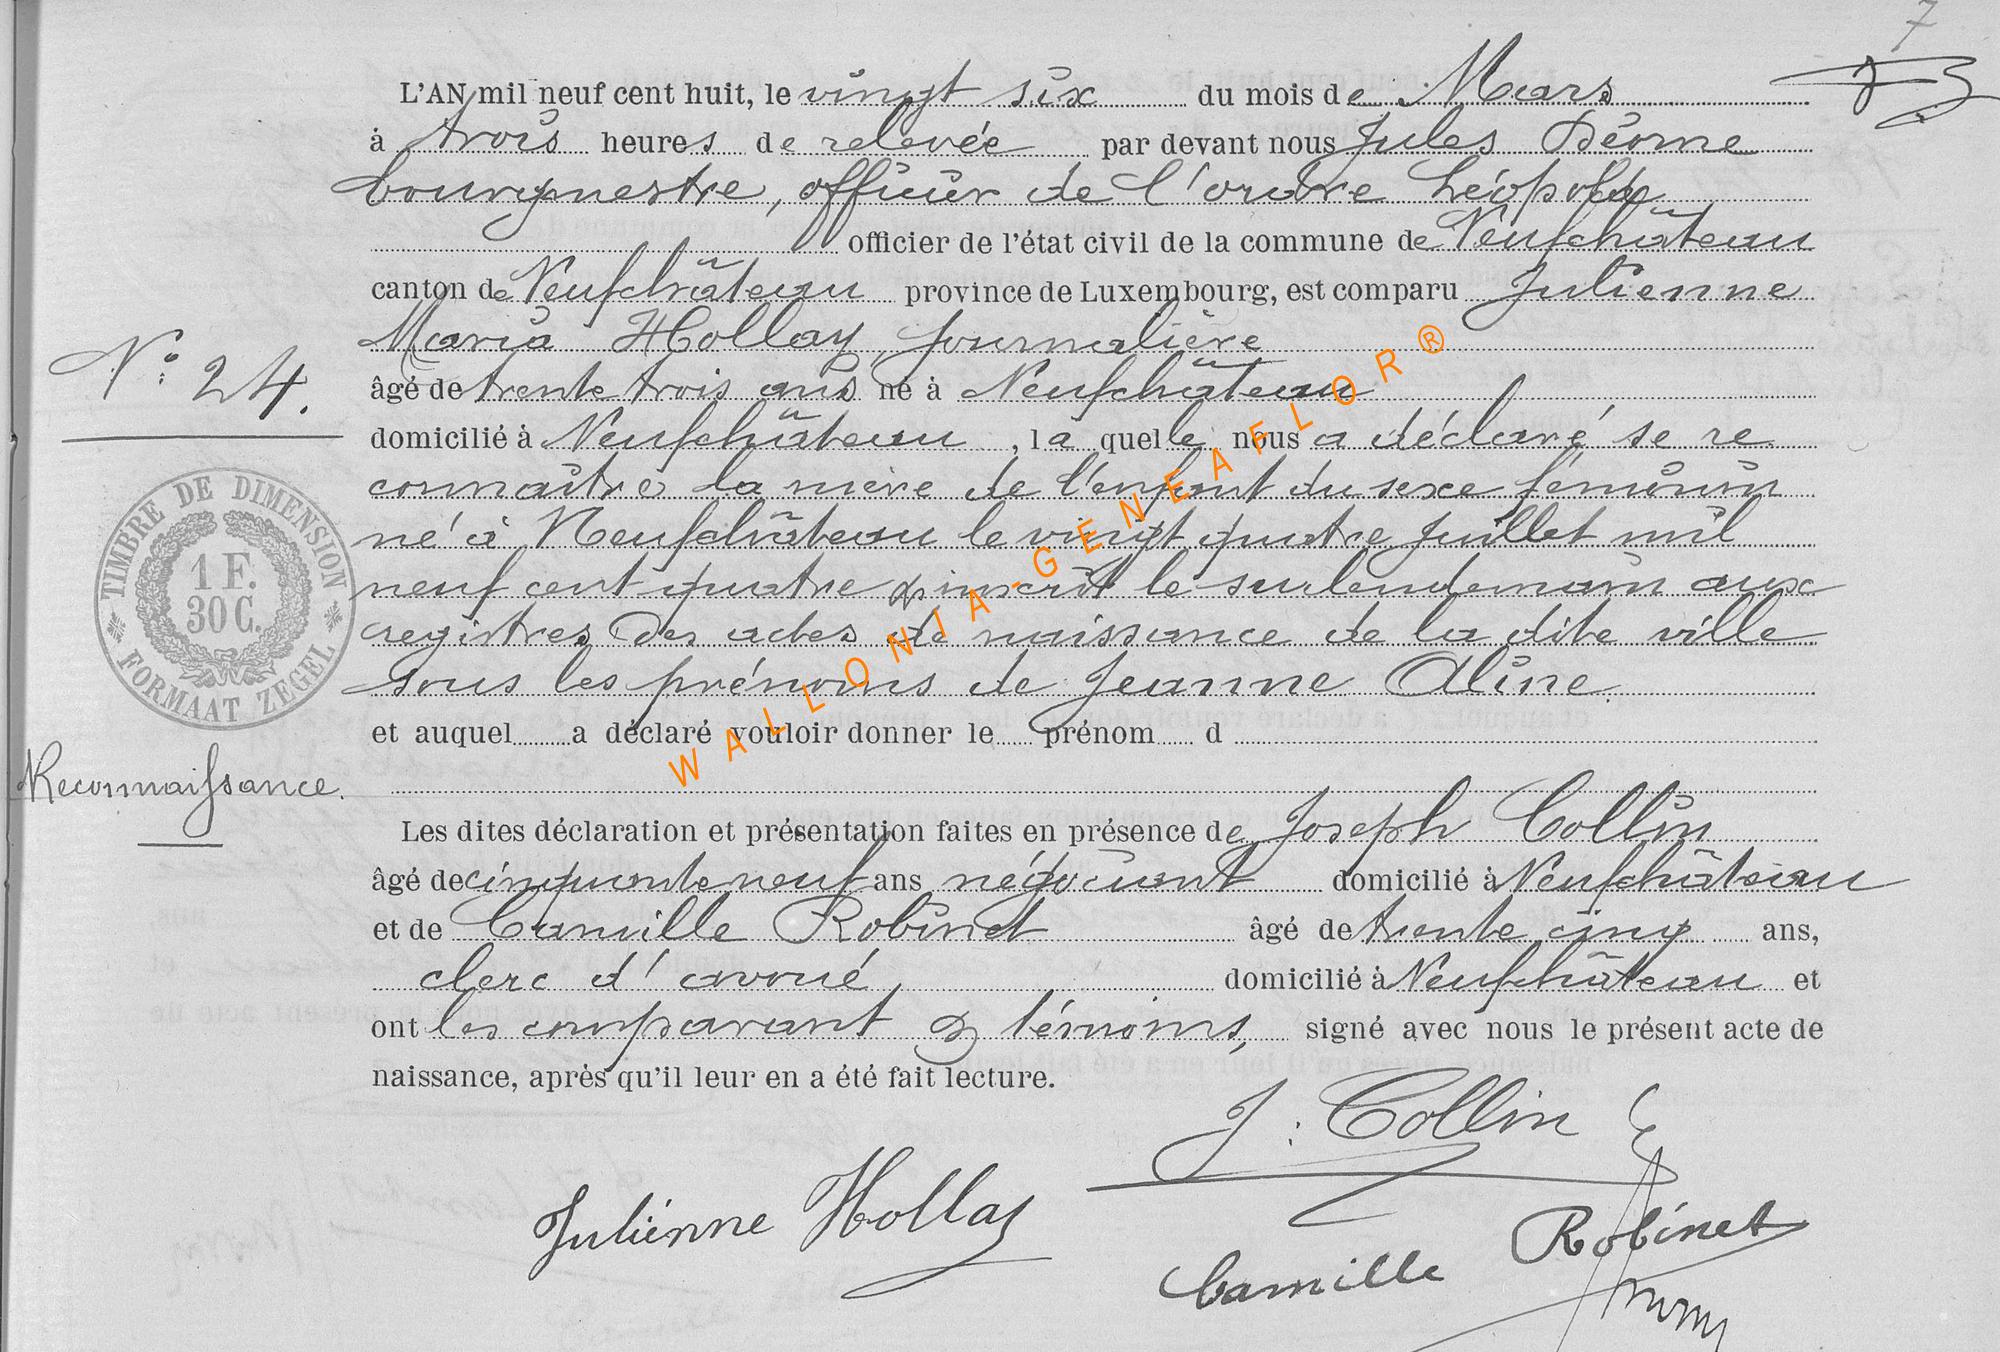 7
L'AN mil neuf cent huit, le vingt six du mois de Mars
à trois heures de relevée par devant nous Jules
bourgmestre, officier de l'ordre Léopold,
officier de l'état civil de la commune de Neufchâteau
canton de Neufchâteau province de Luxembourg, est comparu Julienne
Maria Hollay, journalière
N° 24.
âgé de trente trois ans né à Neufchâteau
domicilié à Neufchâteau, la quelle nous a déclaré se re
connaître la mère de l'enfant du sexe féminin
né à Neufchâteau le vingt quatre Juillet mil
neuf cent quatre & inscrit le surlendemain aux
registres des actes de naissance de la dite ville
sous les prénoms de Jeanne Aline.
et auquel a déclaré vouloir donner le prénom d
Reconnaissance.
Les dites déclaration et présentation faites en présence de Joseph Collin
âgé de cinquante neuf ans négociant domicilié à Neufchâteau
et de Camille Robinet âgé de trente cinq ans,
clerc d'avoué domicilié à Neufchâteau et
ont les comparant & témoins, signé avec nous le présent acte de
naissance, après qu'il leur en a été fait lecture.
J. Collin
Julienne Hollay
Camille Robinet
TIMBRE DE DIMENSION
1 F.
30 C.
FORMAAT ZEGEL
WALLONIA-GENEAFLOR®